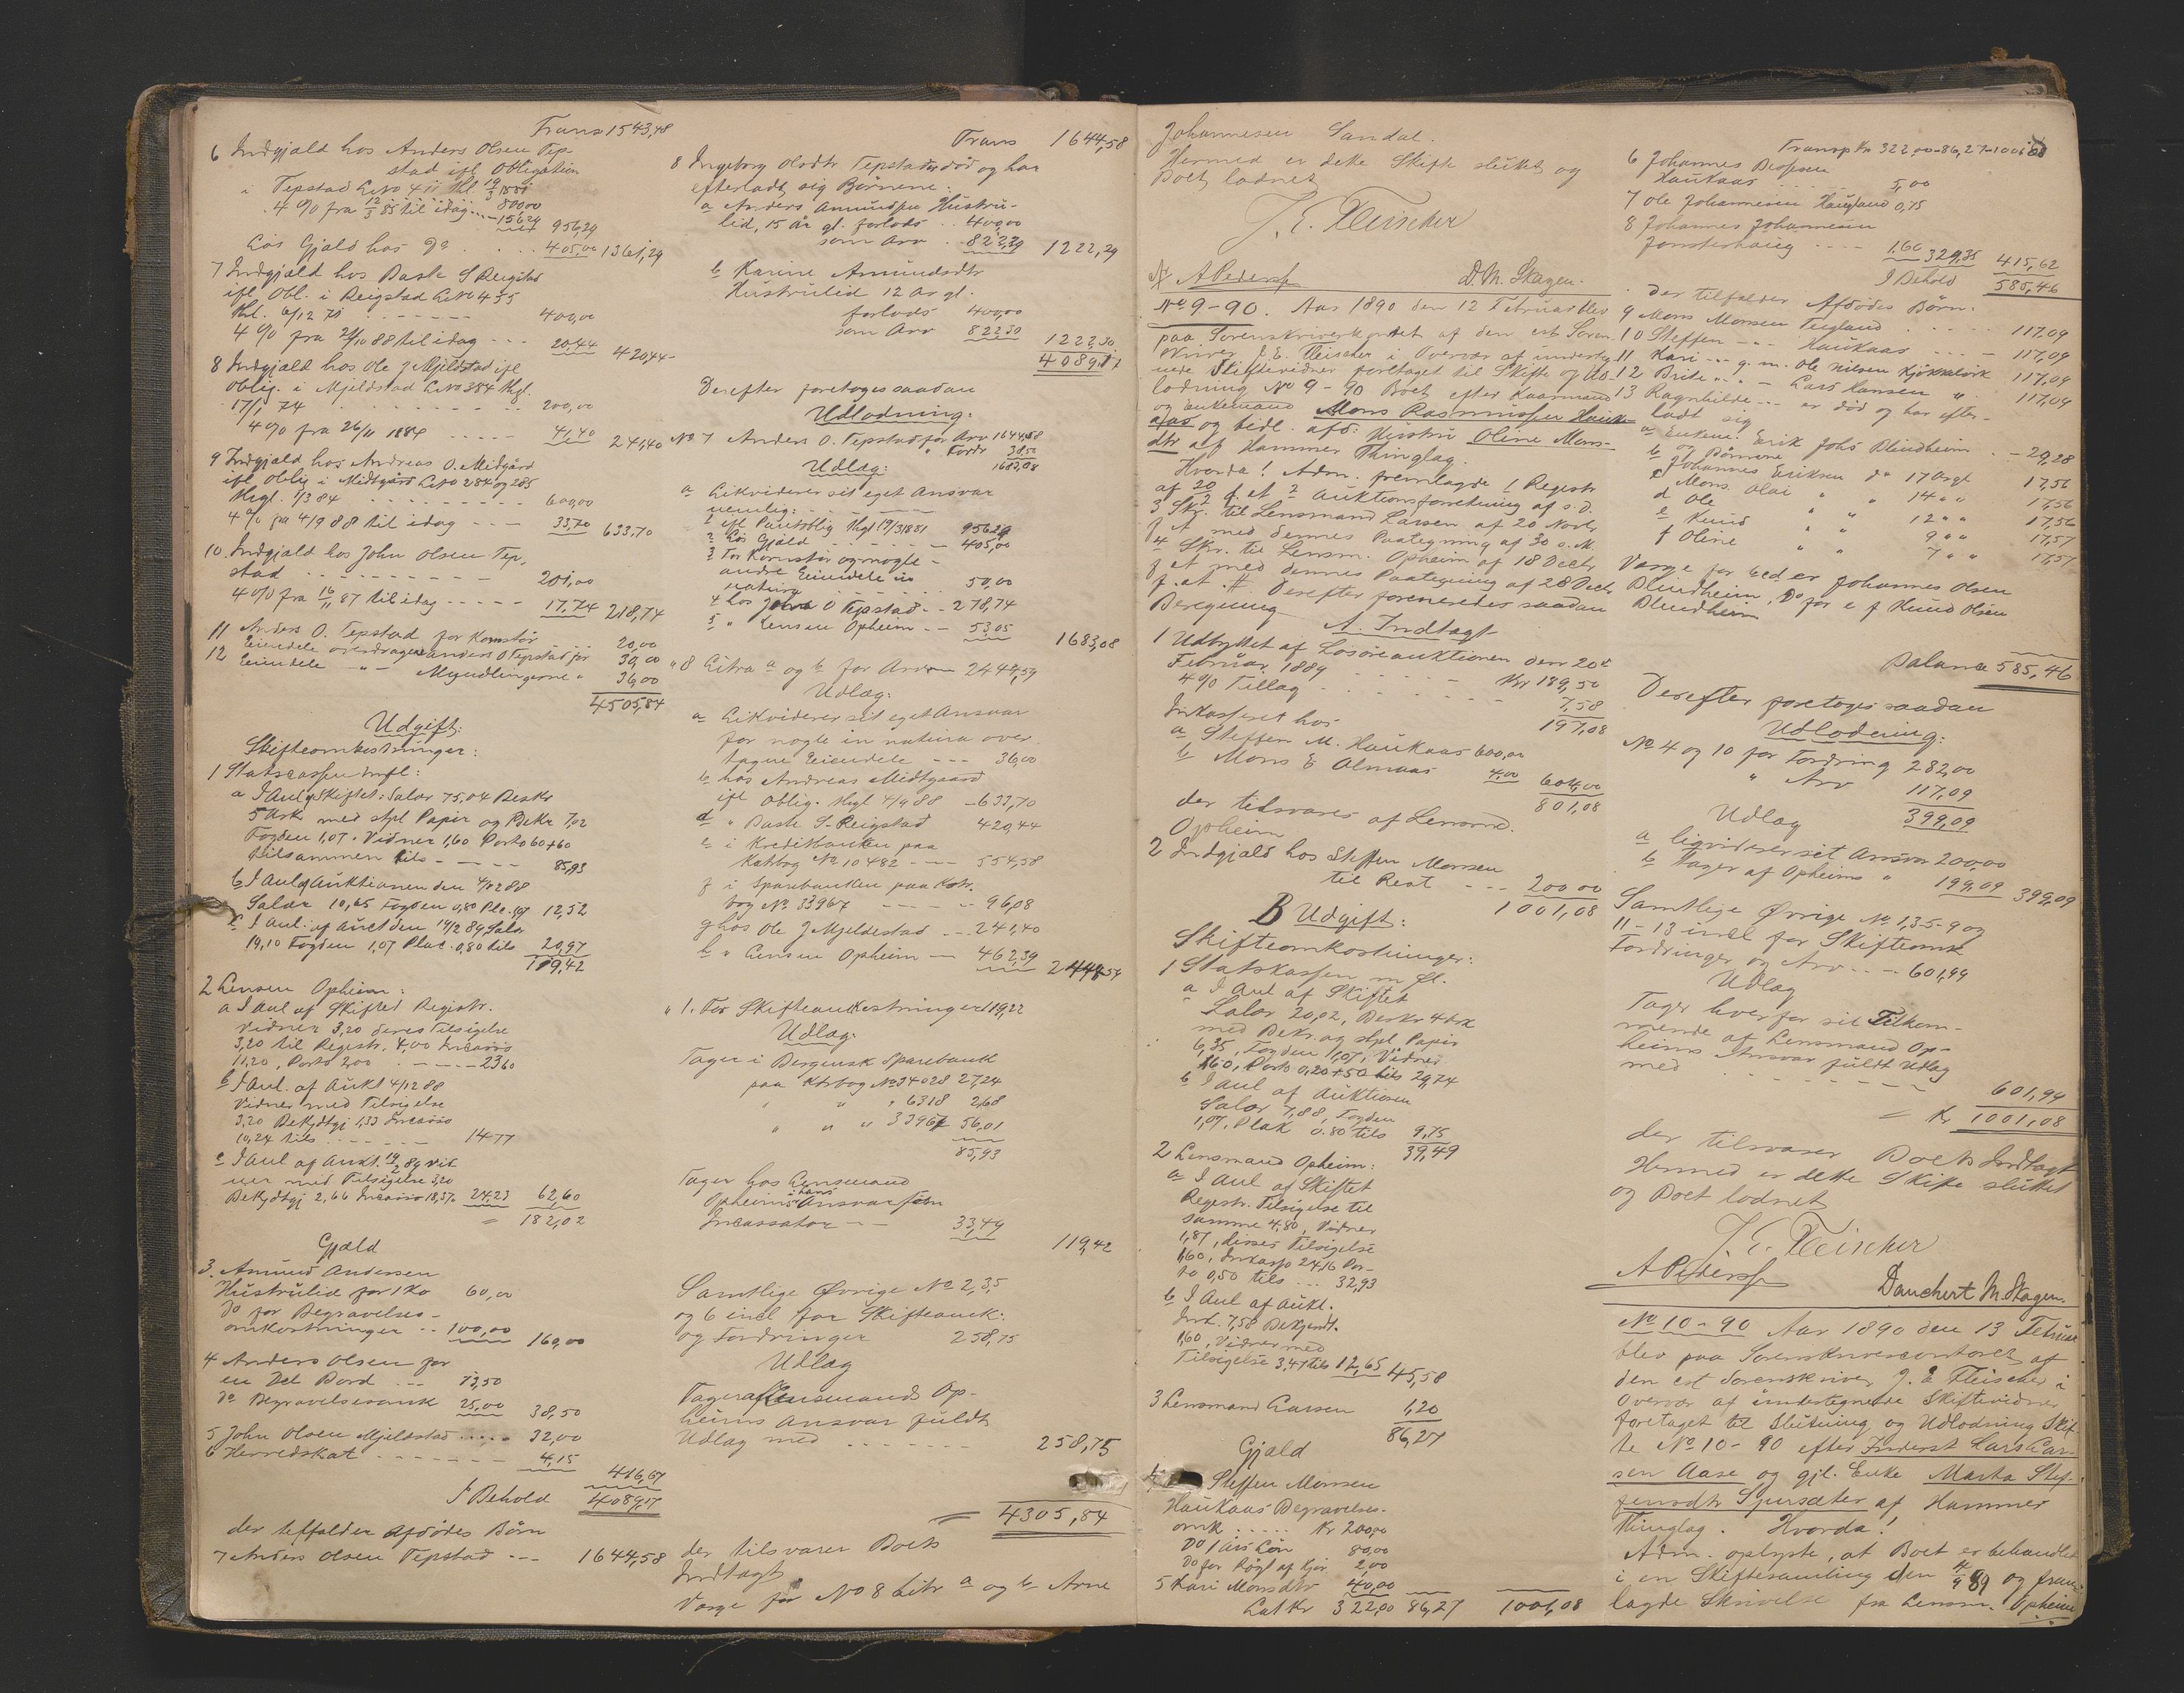 Trans 1543,48
6 Indgjæld hos Anders Olsen Tep-
stad ifl Obligation
i Tepstad LNo 411 thl 19/3 1881
800,00
4 % fra 12/3 85 til idag - - 156,29 956,29
Løs Gjæld hos Do . . . . 405,00 1361,29
7 Indgjæld hos Dasle S Reigstad
ifl Obl. i Reigstad LNo 435
thl. 6/12 71 - - - - - 400,00
4 % fra 21/10 88 til idag - - - 20,44 420,44
8 Indgjæld hos Ole J Mjeldstad ifl
Oblig. i Mjeldstad LNo 384 thgl.
17/1 74 . . . . . . . 200,00
4 % fra 26/11 1884 - - - - - 41,40 241,40
9 Indgjæld hos Andreas O. Midgård
ifl Oblig i Midtgård LNo 284 og 285
thgl. 1/3 84 . . . . . . . 600,00
4 % fra 4/9 88 til idag - - - 33,70 633,70
10. Indgjæld hos John Olsen Tep-
stad - - - - - - - - - 201,00
4 % fra 16/11 87 til idag - - - - - 17,74 218,74
11 Anders O. Tepstad for Kornstør 20,00
12 Eiendele overdragne Anders O Tepstad for 30,00
Eiendele - " - Myndlingerne " 36,00
4505,84
Udgift:
Skifteomkostninger:
1 Statscassen m fl:
a I Anl. af Skiftet: Salær 75,04 Beskr
5 Ark med stpl Papir og Bekr 7,02
Fogden 1,07. Vidner 1,60 Porto 60+60
tilsammen tils - - - - - 85,93
b I Anl af Auktionen den 4/12 88
Salær 10,65 Fogden 0,80 Plc. 1,07 12,52
c I Anl. af Auct den 14/2 89 Salær
19,10 Fogden 1,07 Plac. 0,80 tils 20,97
119,42
2 Lensm Opheim:
a I Anl af Skiftet Registr.
Vidner 3,20 deres Tilsigelse
3,20 til Registr. 4,00 Incasso
11,20, Porto 2,00 . - - - - 23,60
b I Anl. af Aukt 4/12 88
Vidner med Tilsigelse
3,20 Bekjdtgj 1,33 Incasso
10,24 tils - - - - - - 14,77
c I Anl af Aukt. 14/2 89 Vid-
ner med Tilsigelse 3,20
Bekjdtgj 2,66 Incasso 18,37 24,23 62,60
= 182,02
Gjæld
3. Amund Andersen
Hustrulid for 1 Ko 60,00
Do for Begravelses-
omkostninger . . 100,00 160,00
4 Anders Olsen for
en Del Bord - - - 13,50
Do Begravelsesomk 25,00 38,50
5 John Olsen Mjeldstad . . . . . 32,00
6 Herredskat - - - - - - - 4,15
416,67
I Behold 4089,17
der tilfalder Afdødes Børn
7 Anders Olsen Tepstad - - - 1644,58
Trans 1644,58
8 Ingeborg Olsdtr Tepstad er død og har
efterladt sig Børnene:
a Anders Amundsen Hustru-
lid, 15 år gl. forlods . . 400,00
som Arv . . 822,29 1222,29
b Karine Amundsdtr
Hustrulid 12 år gl.
forlods 400,00
som Arv 822,30 1222,30
4089,17
Derefter foretoges saadan
Udlodning:
No 7 Anders O. Tepstad for Arv 1644,58
" Fordr 38,50
Udlæg: 1683,08
a Likviderer sit eget Ansvar
nemlig: - - - - - -
1 ifl Pantoblig thgl 19/3 1881 956,29
2 Løs Gjæld - - - - - - 405,00
3 For Kornstør og nogle -
andre Eiendele in
natura . . . . . . . 50,00
4 hos John O Tepstad - - 218,74
5 " Lensm Opheim - - 53,05 1683,08
" 8 Litra a og b for Arv 2444,59
Udlæg:
a Likviderer sit eget Ansvar
for nogle in natura over-
tagne Eiendele - - - 36,00
b hos Andreas Midtgaard
ifl Oblig. thgl 4/9 88 - 633,70
d " Dasle S. Reigstad 420,44
e i Kreditbanken paa
Katbog No 10482 - - - 554,58
f i Sparebanken paa Kntr.
bog No 33967 - - - - - 96,08
g hos Ole J Mjeldestad - - 241,40
h " Lensm Opheim - 462,39 2444,59
" 1. For Skifteomkostninger 119,22
Udlæg:
Tager i Bergensk Sparebank
paa Ktrbog No 34028 27,24
" " " 6318 2,68
" " " 33967 56,01
85,93
Tager hos Lensmand
Opheim i hans Ansvar som
Incassator - - 33,49 119,42
Samtlige Øvrige No 2, 3, 5
og 6 incl for Skifteomk:
og Fordringer 258,75
Udlæg
Tager af Lensmands Op-
heims Ansvar fuldt
Udlæg med . . - - - - - 258,75
= 4305,84
der tilsvarer Boets
Indtægt
Værge for No 8 Litr a og b Arne
Johannesen Sandal.
Hermed er dette Skifte sluttet og
Boet lodnet
J. E. Fleischer
A Pederss D. M. Skagen.
No 9-90. Aar 1890 den 12 Februar blev
paa Sorenskriverkontoret af den est Soren-
skriver J. E. Fleischer i Overvær af underteg-
nede Skiftevidner foretaget til Skifte og Ud-
lodning No 9-90 Boet efter Kaarmand
og Enkemand Mons Rasmussen Hauk-
aas og tidl. afd: Hustru Oline Mons-
dtr af Hammer Thinglag.
Hvorda! Adm. fremlagde 1 Registr
af 20 d. et 2 Auktionsforretning af s. D.
3 Skr. til Lensmand Larsen af 20 Novbr
f et med dennes Paategning af 30 s. M.
4 Skr. til Lensm. Opheim af 18 Decbr
f et med dennes Paategning af 28 Decbr
f. et. #. Derefter forenedes saadan
Beregning
A. Indtægt
1 Udbyttet af Løsøreauktionen den 20de
Februar 1889 - - - Kr 189,50
4 % Tillæg - - - - - - 7,58
197,08
Inkasseret hos
a Steffen M. Haukaas 600,00
b Mons E Almaas 4,00 604,00
801,08
der tilsvares af Lensmd.
Opheim
2 Indgjæld hos Steffen Monsen
til Rest - - - 200,00
1001,08
B Udgift:
Skifteomkostninger:
1 Statskassen m fl.
a I Anl af Skiftet
Salær 20,02, Beskr 4 Ark
med Bekr. og stpl Papir
6,35, Fogden 1,07, Vidner
1,60, Porto 0,20+50 tils 29,74
b I Anl af Auktionen
Salær 7,88, Fogden
1,07, Plak 0.80 tils 9,75
39,49
2 Lensmand Opheim:
a I Anl af Skiftet
Registr. Tilsigelse til
samme 4,80, Vidner
1,87, disses Tilsigelse
1,60, Inkasso 24,16 Por-
to 0,50 tils - - - 32,93
b I Anl af Aukt.
Ink. 7,58 Bekjendt.
1,60, Vidner med
Tilsigelse 3,47 tils 12,65 45,58
3 Lensmand Larsen 1,20
86,27
Gjæld
4 Steffen Monsen
Haukaas Begravelses-
omk - - - - - Kr 200,00
Do 1 års Løn 80,00
Do for Røgl af Kjør 2,00
5 Kari Monsdtr 40,00
Lat Kr 322,00 86,27 1001,08
Transp Kr 322,00-86,27-1001,08
6 Johannes
Haukaas - - - - - 5,00
7 Ole Johannesen Haugland 0,75
8 Johannes Johannesen
Jonsterhaug - - - - 1,60 329,35 415,62
I Behold 585,46
der tilfalder Afdødes Børn:
9 Mons Monsen Tuegland . . . . . 117,09
10 Steffen - " - Haukaas - - - - 117,09
11 Kari - " - g. m. Ole Nilsen Kjøkkelvik 117,09
12 Brite " " - Lars Hansen " 117,09
13 Ragnhilde - - - er død og har efter-
ladt sig
a Enkem. Erik Johs Blindheim . - 29,28
og Børnene
b Johannes Eriksen do 17 Aar gl 17,56
c Mons Olai " " 14 " " 17,56
d Ole " " 12 " " 17,56
e Knud " " 9 " " 17,57
f Oline " " 7 " " 17,57
Værge for b c d er Johannes Olsen
Blindheim, Do for e f Knud Olsen
Blindheim
Balance 585,46
Derefter foretoges saadan
Udlodning:
No 4 og 10 for Fordring 282,00
" Arv 117,09
Udlæg 399,09
a liqviderer sit Ansvar 200,00
b Tager af Opheims " 199,09 399,09
Samtlige Øvrige No 1,3-5-9 og
11-13 incl for Skifteomk
Fordringer og Arv - - - 601,99
Udlæg
Tager hver for sit Tilkom-
mende af Lensmand Op-
heims Ansvar fuldt Udlæg
med . - - - - - - - 601,99
= Kr 1001,08
der tilsvarer Boets Indtægt
Hermed er dette Skifte sluttet
og Boet lodnet
J. E. Fleischer
A Pederss Danchert M. Skagen.
No 10-90 Aar 1890 den 13 Februar
blev paa Sorenskrivercontoret af
den est Sorenskriver J. E Fleischer i
Overvær af undertegnede Skiftevidner
foretaget til Slutning og Udlodning Skif-
te No 10-90 efter Inderst Lars Lar-
sen Aase og gjl. Enke Marta Stef-
fensdtr Spursæter af Hammer
Thinglag. Hvorda!
Adm. oplyste, at Boet er behandlet
i en Skiftesamling den 4/9 89 og frem-
lagde Skrivelse fra Lensm. Opheim